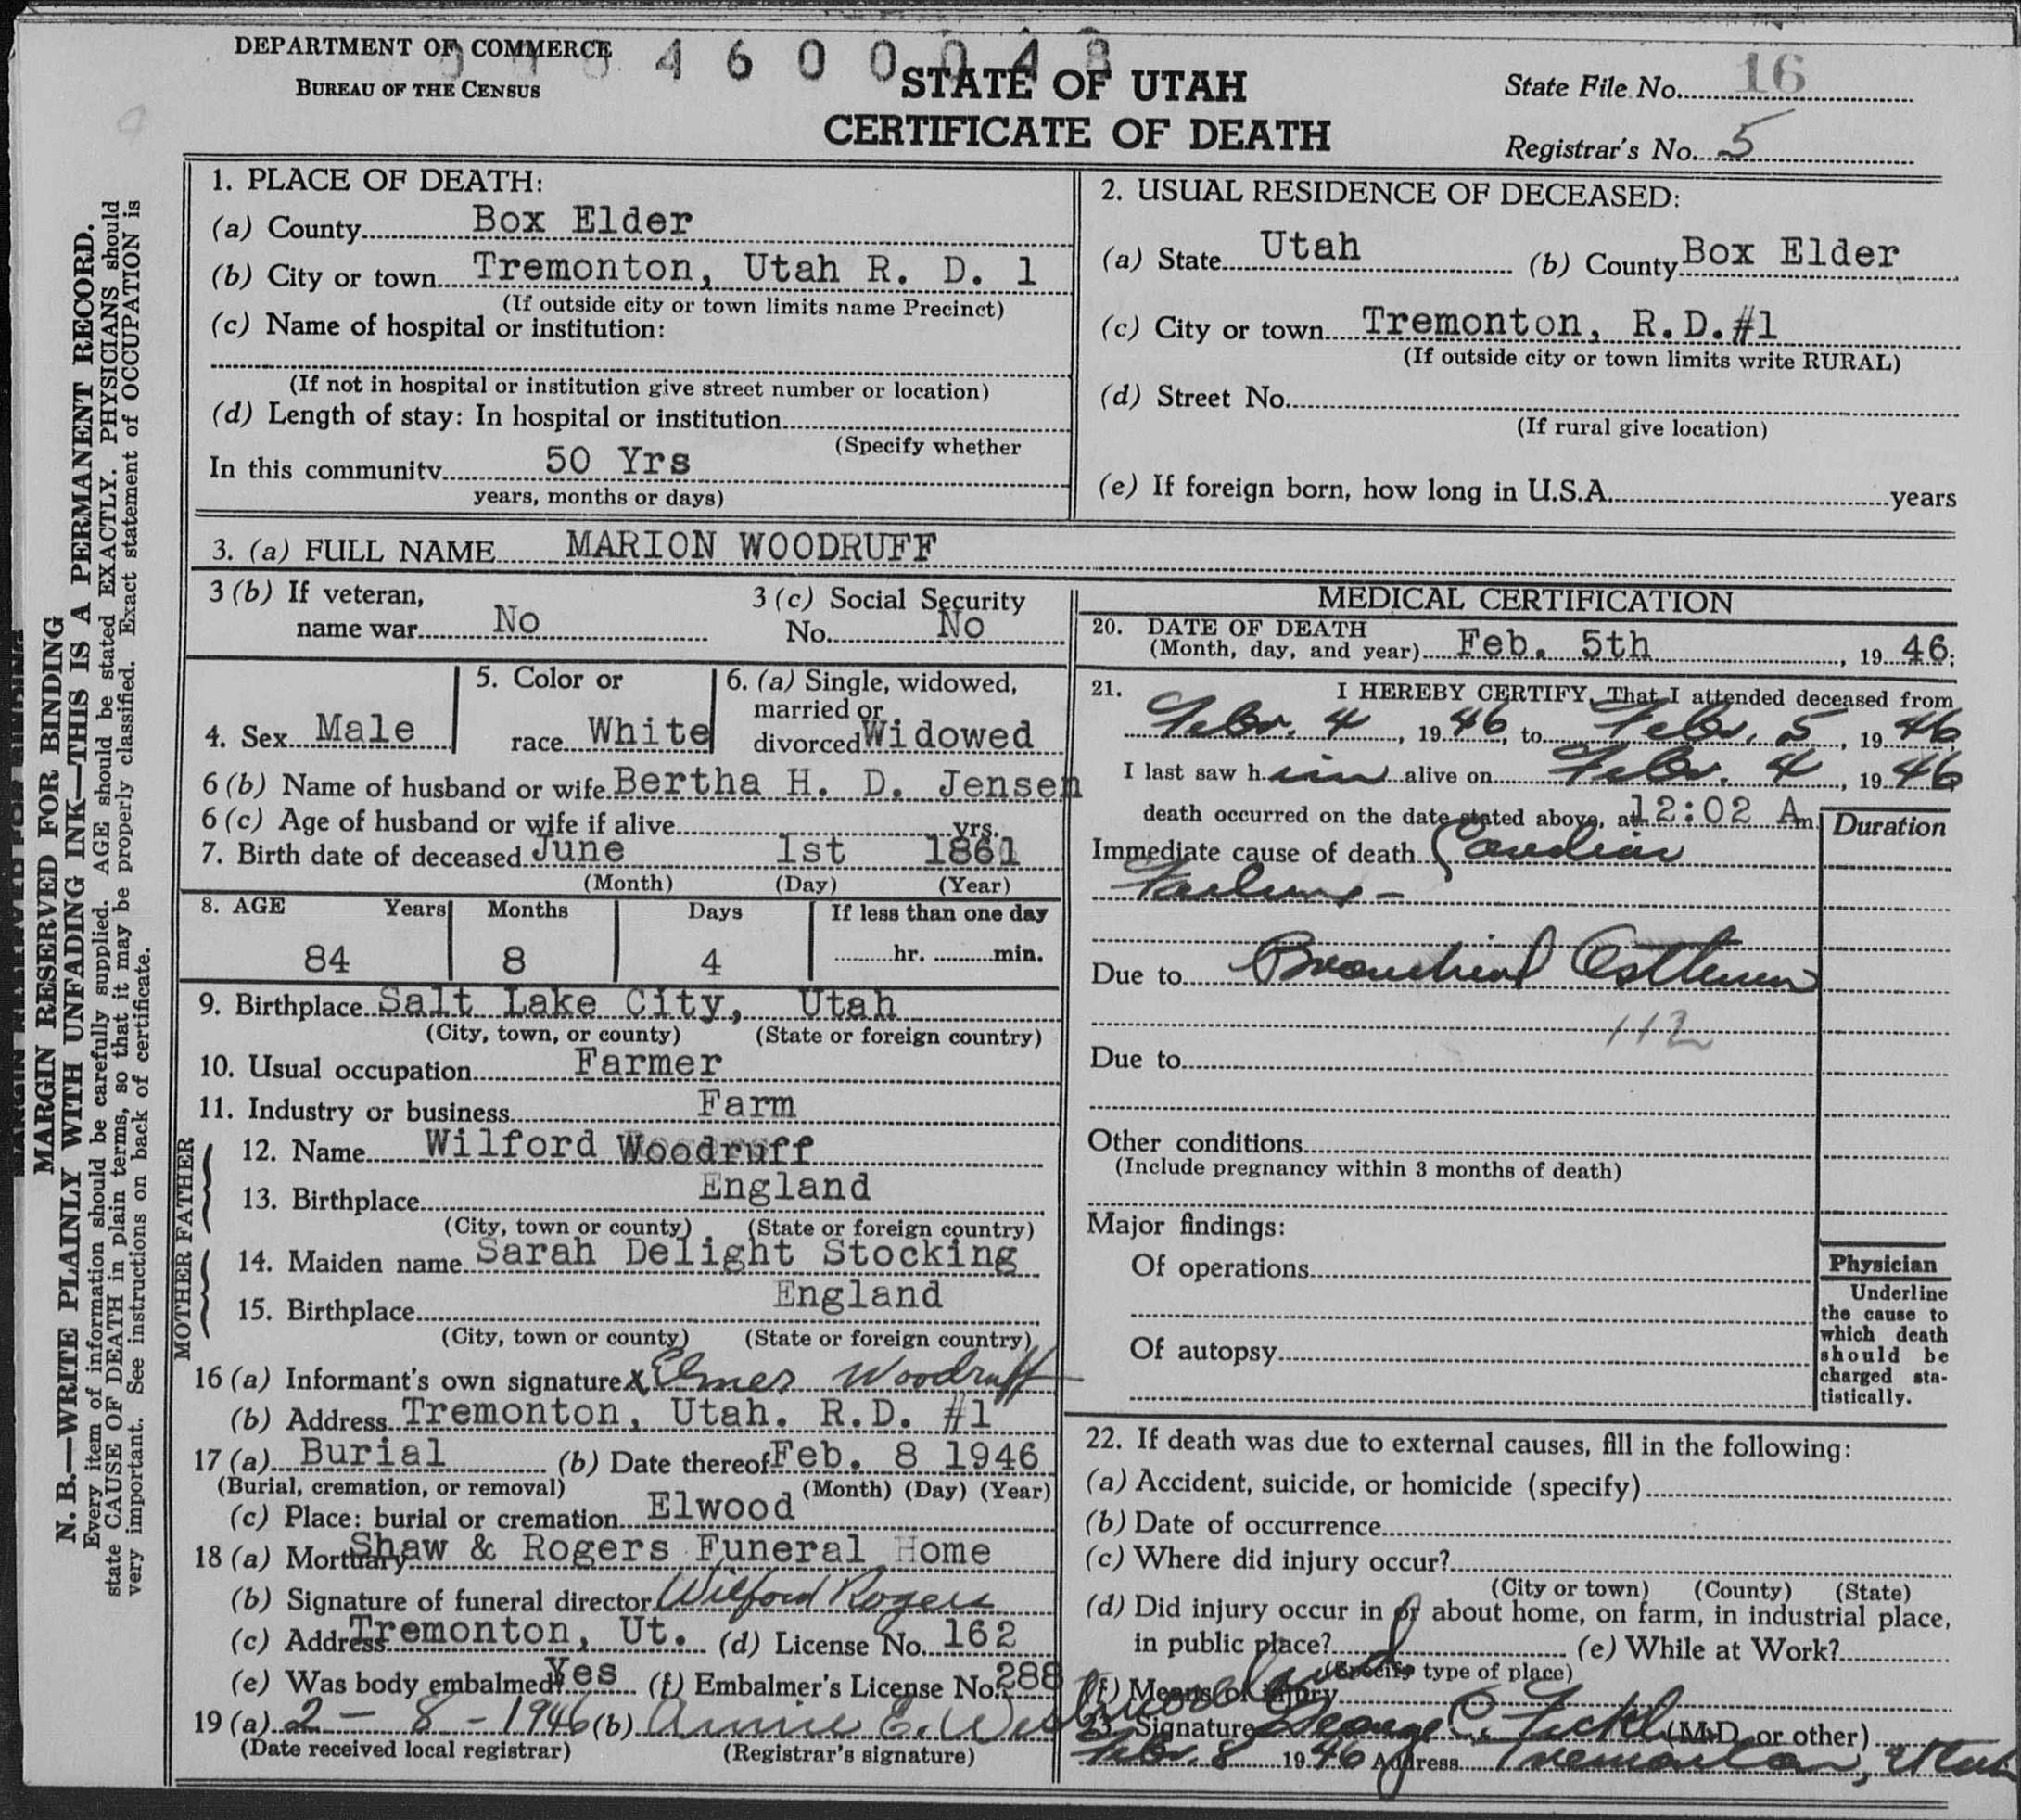 DEPARTMENT OF COMMERCE
BUREAU OF THE CENSUS
4 6 0 0 0 4 8
STATE OF UTAH
CERTIFICATE OF DEATH
State File No. 16
Registrar's No. 5
MARGIN RESERVED FOR BINDING
N. B.—WRITE PLAINLY WITH UNFADING INK—THIS IS A PERMANENT RECORD.
Every item of information should be carefully supplied. AGE should be stated EXACTLY. PHYSICIANS should
state CAUSE OF DEATH in plain terms, so that it may be properly classified. Exact statement of OCCUPATION is
very important. See instructions on back of certificate.
1. PLACE OF DEATH:
(a) County Box Elder
(b) City or town Tremonton, Utah R. D. 1
(If outside city or town limits name Precinct)
(c) Name of hospital or institution:
(If not in hospital or institution give street number or location)
(d) Length of stay: In hospital or institution
(Specify whether
In this community 50 Yrs
years, months or days)
2. USUAL RESIDENCE OF DECEASED:
(a) State Utah (b) County Box Elder
(c) City or town Tremonton, R.D.#1
(If outside city or town limits write RURAL)
(d) Street No.
(If rural give location)
(e) If foreign born, how long in U.S.A. years
3. (a) FULL NAME MARION WOODRUFF
3 (b) If veteran,
name war No
3 (c) Social Security
No. No
4. Sex Male
5. Color or
race White
6. (a) Single, widowed,
married or
divorced Widowed
6 (b) Name of husband or wife Bertha H. D. Jensen
6 (c) Age of husband or wife if alive yrs.
7. Birth date of deceased June 1st 1861
(Month) (Day) (Year)
8. AGE Years Months Days If less than one day
84 8 4 hr. min.
9. Birthplace Salt Lake City, Utah
(City, town, or county) (State or foreign country)
10. Usual occupation Farmer
11. Industry or business Farm
FATHER
12. Name Wilford Woodruff
13. Birthplace England
(City, town or county) (State or foreign country)
MOTHER
14. Maiden name Sarah Delight Stocking
15. Birthplace England
(City, town or county) (State or foreign country)
16 (a) Informant's own signature x Elmer Woodruff
(b) Address Tremonton, Utah. R.D. #1
17 (a) Burial (b) Date thereof Feb. 8 1946
(Burial, cremation, or removal) (Month) (Day) (Year)
(c) Place: burial or cremation Elwood
18 (a) Mortuary Shaw & Rogers Funeral Home
(b) Signature of funeral director Wilford Rogers
(c) Address Tremonton, Ut. (d) License No. 162
(e) Was body embalmed? Yes (f) Embalmer's License No. 288
19 (a) 2 - 8 - 1946 (b) Annie E. Westmoreland
(Date received local registrar) (Registrar's signature)
MEDICAL CERTIFICATION
20. DATE OF DEATH
(Month, day, and year) Feb. 5th, 19 46;
21. I HEREBY CERTIFY, That I attended deceased from
Febr. 4, 19 46, to Febr. 5, 19 46
I last saw h im alive on Febr. 4, 19 46
death occurred on the date stated above, at 12:02 A m.
Duration
Immediate cause of death Cardiac
Failure -
Due to Bronchial Asthma
112
Due to
Other conditions
(Include pregnancy within 3 months of death)
Major findings:
Of operations
Of autopsy
Physician
Underline
the cause to
which death
should be
charged sta-
tistically.
22. If death was due to external causes, fill in the following:
(a) Accident, suicide, or homicide (specify)
(b) Date of occurrence
(c) Where did injury occur?
(City or town) (County) (State)
(d) Did injury occur in or about home, on farm, in industrial place,
in public place? (e) While at Work?
(Specify type of place)
(f) Means of injury
23. Signature George C. Ficklin (M.D. or other)
Febr. 8 19 46 Address Tremonton, Utah